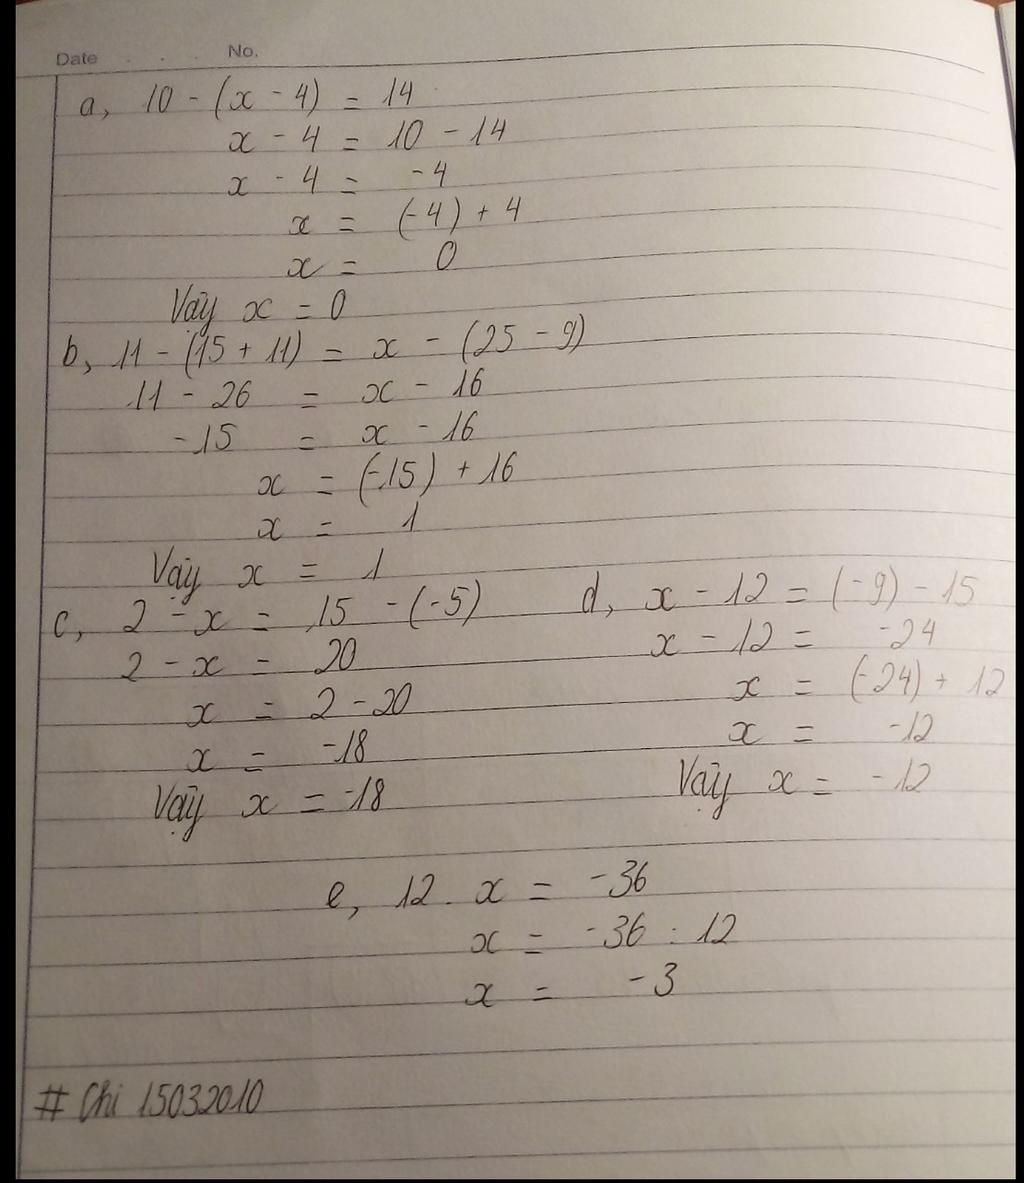 Date . . . No.
a, 10 - (x - 4) = 14
x - 4 = 10 - 14
x - 4 = -4
x = (-4) + 4
x = 0
Vậy x = 0
b, 11 - (15 + 11) = x - (25 - 9)
11 - 26 = x - 16
-15 = x - 16
x = (-15) + 16
x = 1
Vậy x = 1
c, 2 - x = 15 - (-5)
2 - x = 20
x = 2 - 20
x = -18
Vậy x = -18
d, x - 12 = (-9) - 15
x - 12 = -24
x = (-24) + 12
x = -12
Vậy x = -12
e, 12 . x = -36
x = -36 : 12
x = -3
# Chi 15032010